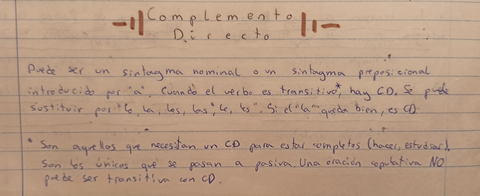 Complemento
Directo
Puede ser un sintagma nominal o un sintagma preposicional
introducido por "a". Cuando el verbo es transitivo*, hay CD. Se puede
sustituir por "lo, la, los, las, le, les". Si el "la" queda bien, es CD
* Son aquellos que necesitan un CD para estar completos (hacer, estudiar).
Son los únicos que se pasan a pasiva. Una oración copulativa NO
puede ser transitiva con CD.